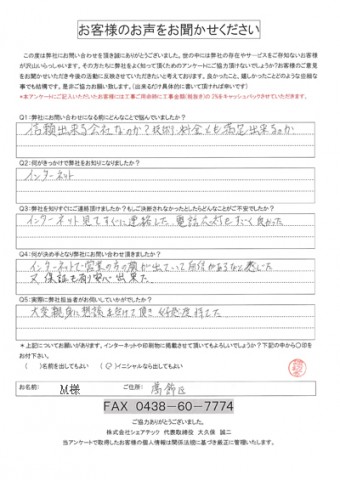 お客様のお声をお聞かせください
この度は弊社にお問い合わせを頂き誠にありがとうございました。世の中には弊社の存在やサービスをご存知ないお客様
が沢山いらっしゃいます。その方たちに弊社をよく知って頂くためのアンケートにご協力頂けないでしょうか?お客様のご意見
をお聞かせいただき今後の活動に反映させていただきたいと考えております。良かったこと、嬉しかったことどのような些細な
事でも結構です。是非ご協力お願い致します。(出来るだけ具体的に書いて頂ければ幸いです)
*本アンケートにご記入いただいたお客様には工事ご用命時に工事金額(税抜き)の2%をキャッシュバックさせていただきます。
Q1:弊社にお問い合わせになる前にどんなことで悩んでいましたか?
信頼出来る会社なのか?技術、料金とも満足出来るのか
Q2:何がきっかけで弊社をお知りになりましたか?
インターネット
Q3:弊社を知りすぐにご連絡頂けましたか?もしご決断されなかったとしたらどんなことがご不安でしたか?
インターネット見てすぐに連絡した 電話
良かった
Q4:何が決め手となり弊社にお問い合わせ頂きましたか?
インターネットで営業の方の顔が出ていて
感じた
又、保証も有り安心出来た。
Q5:実際に弊社担当者がお伺いしていかがでしたか?
大変親身に相談を受けて頂き 好感度持てた
*上記についてお願いがあります。インターネットや印刷物に掲載させて頂いてもよろしいでしょうか?下記の中から〇印を
お付け下さい。
( )名前を出してもよい (〇)イニシャルなら出してもよい
お名前: M様 ご住所: 葛飾区
FAX 0438-60-7774
ご協力ありがとうございました。
株式会社シェアテック 代表取締役 大久保 誠二
当アンケートで取得したお客様の個人情報は関係法規に基づき厳正に管理いたします。